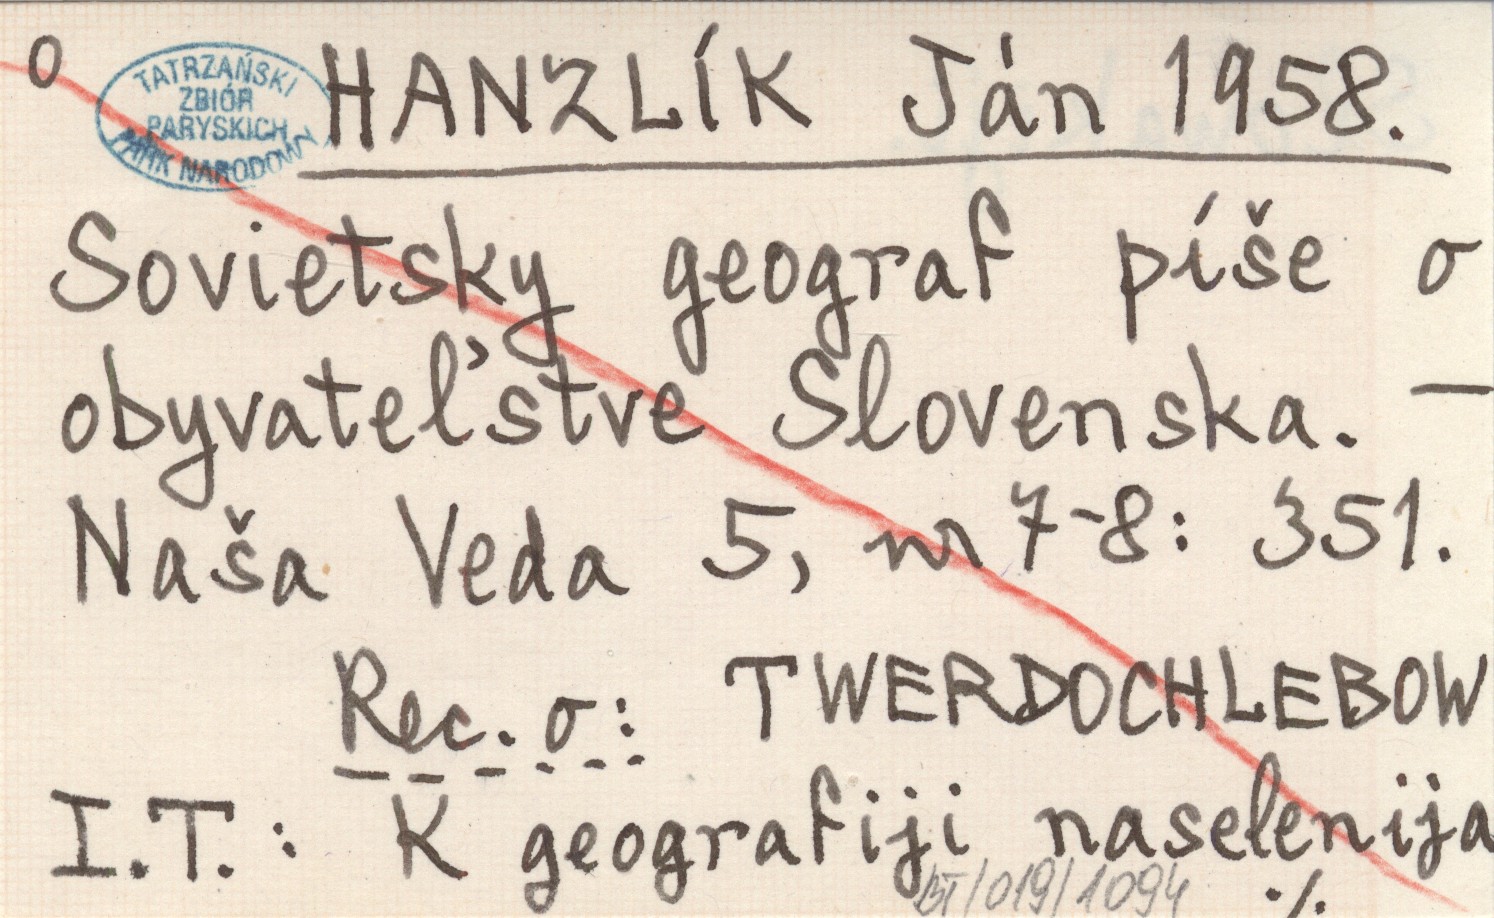 o
TATRZAŃSKI
ZBIÓR
PARYSKICH
PARK NARODOWY
HANZLÍK Ján 1958.
Sovietsky geograf píše o
obyvateľstve Slovenska. —
Naša Veda 5, nr 7-8: 351.
Rec. o: TWERDOCHLEBOW
I.T.: K geografiji naselenija
BT/019/1094 ./.